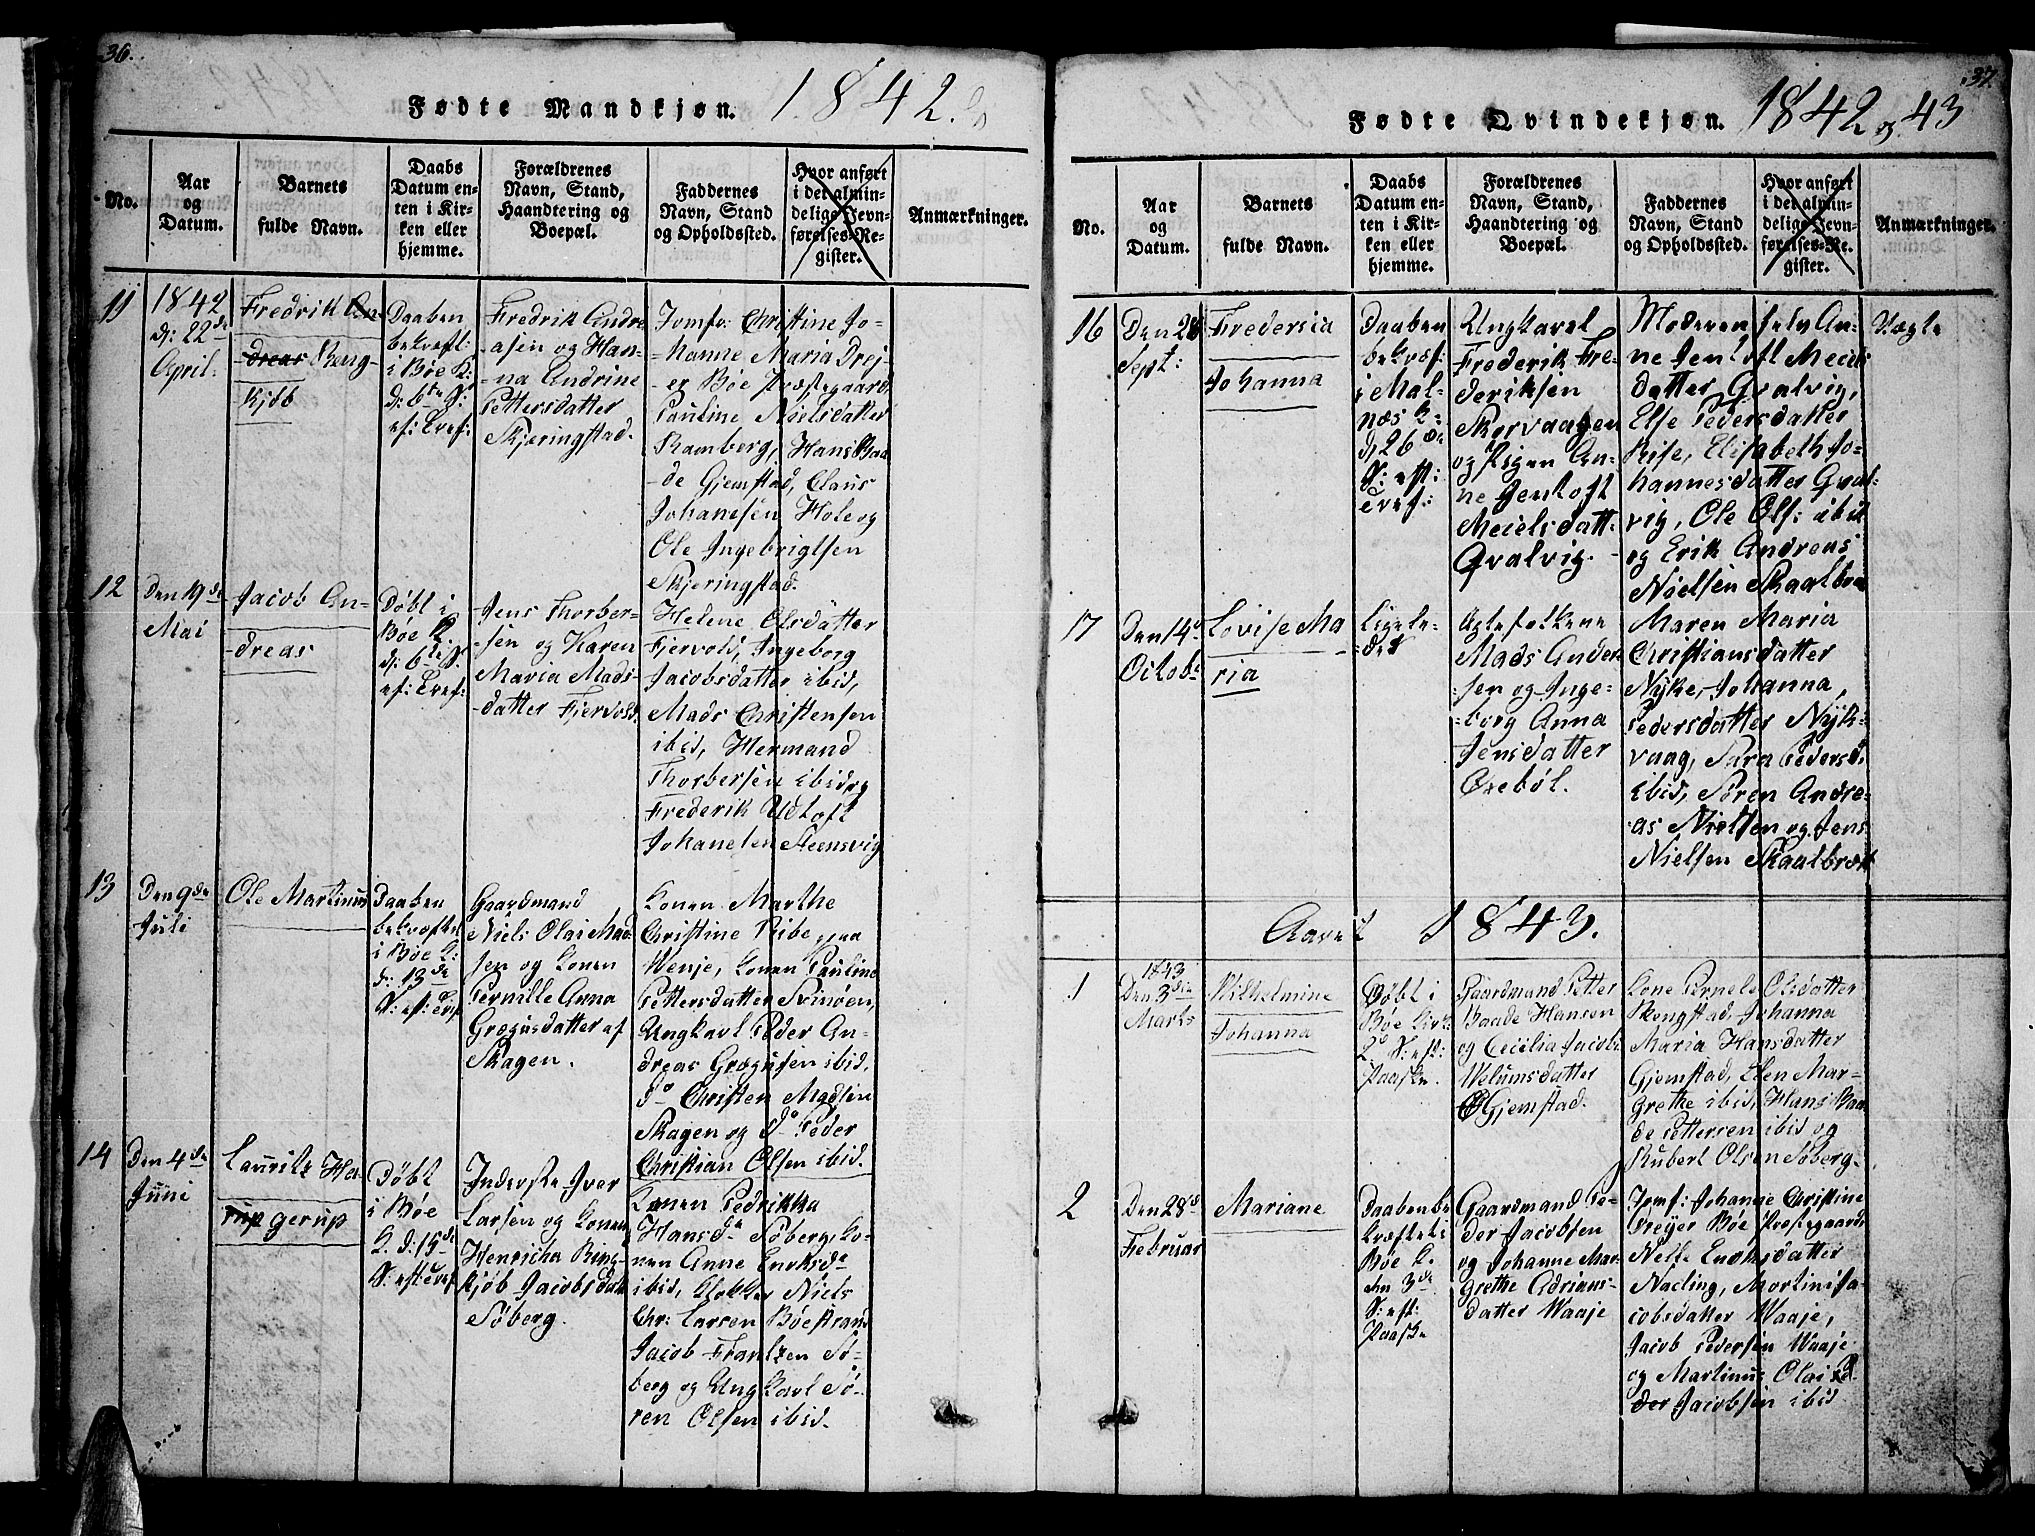 36.
Fødte Mandkjøn. 1842.
No.
Aar
og
Datum.
Barnets
fulde Navn.
Daabs
Datum en-
ten i Kir-
ken eller
hjemme.
Forældrenes
Navn, Stand,
Haandtering og
Boepæl.
Faddernes
Navn, Stand
og Opholdssted.
Hvor anført
i det almin-
delige Jevn-
førelses-Re-
gister.
Anmærkninger.
11
1842
d: 22de
April.
Fredrik An-
-dreas Reng-
Kjøb
Daaben
bekræft:
i Böe K:
d: 6te S:
ef: Tref:
Fredrik Andre
-asen og Han-
-na Andrine
Pettersdatter
Skjeringstad.
Jomfr: Christine Jo-
-hanne Maria Drej-
-er Böe Præstegaard,
Pauline Noelsdatter
Ramberg, Hans Baa
-de Gjemstad, Claus
Johannsen Hole og
Ole Ingebrigtsen
Skjeringstad.
12
Den 19de
Mai
Jacob An-
-dreas
Döbt i
Böe K.
d: 6te S.
ef: Tref:
Jens Thorber-
-sen og Karen
Maria Mads-
-datter Fjervold
Helene Olsdatter
Fjervold, Ingeborg
Jacobsdatter ibid,
Mads Christensen
ibid, Hermand
Thorbersen ibid og
Frederik Udtoft
Johanesen Steensvig
13
Den 9de
Juli
Ole Martinus
Daaben
bekræftet
i Böe K:
d: 13de
S: ef: Tref
Gaardmand
Niels Olai Mad
sen og Konen
Pernille Anna
Gregusdatter af
Skagen.
Konen Marthe
Christine Ribe paa
Wenje, Konen Pauline
Pettersdatter Svinöen,
Ungkarl Peder An-
dreas Gregusen ibid,
do Christen Madsen
Skagen og do Peder
Christian Olsen ibid.
14
Den 4de
Juni
Lauritz Ha-
rup gerup
Döbt
i Böe
K. d: 15de
S: eft: Tref
Inderste Iver
Larsen og Konen
Henricha Ring-
kjöb Jacobsdatt
Söberg.
Konen Fedrikka
Hansda Söberg, Ko-
nen Anne Enoksda
ibid, Klokker Niels
Chr: Larsen Böestrand
Jacob Frantzen Sö-
berg og Ungkarl Sö-
ren Olsen ibid.
37.
Fødte Qvindekjøn. 1842 og 43
No.
Aar
og
Datum.
Barnets
fulde Navn.
Daabs
Datum en-
ten i Kir-
ken eller
hjemme.
Forældrenes
Navn, Stand,
Haandtering og
Boepæl.
Faddernes
Navn, Stand
og Opholdssted.
Hvor anført
i det almin-
delige Jevn-
førelses-Re-
gister.
Anmærkninger.
16
Den 28
Sept:
Fredersia
Johanna
Daaben
bekræf:
i Mal-
næs K:
d, 26de
S: eft:
Tref:
Ungkarel
Frederik Fre-
deriksen
Skorvaagen
og Pigen An-
ne Jentoft
Meielsdatt:
Qvalvig.
Moderen selv An-
ne Jentoft Meiels
datter Qvalvig,
Else Pedersdatter
Rise, Elisabeth Jo-
hannesdatter Qval-
vig, Ole Ols: ibid
og Erik Andreas
Nielsen Skaalbræ
Uægte
17
Den 14de
Octob:
Lovise Ma
ria
Ligele-
des
Ægtefolkene
Mads Ander
-sen og Inge-
-borg Anna
Jensdatter
Oxebøl.
Maren Maria
Christiansdatter
Nyke, Johanna
Pedersdatter Nyk-
vaag, Sara Pedersd
ibid, Sören Andre-
as Nielsen og Jens
Nielsen Skaalbræk
Aaret 1843.
1
1843
Den 3die
Marts
Wilhelmine
Johanna
Döbt i
Böe Kirk:
2d S: eft:
Paaske.
Gaardmand Petter
Baade Hansen
og Cecilia Jacob
Welumsdatter
Gjemstad.
Kone Pernele Olsdatter
Rengstad, Johanna
Maria Hansdatter
Gjemstad, Elen Mar-
grethe ibid, Hans Baa
de Pettersen ibid og
Rubert Olsen Söberg.
2
Den 28de
Februar
Mariane
Daaben be
kræftet i
Böe K.
den 3de
S: eft:
Paaske
Gaardmand Pe-
der Jacobsen
og Johanne Mar-
grethe Adrians-
datter Waaje
Jomf: Johanne Christine
Dreyer Böe Præstegaard,
Nelle Enoksdatter
Nacling, Martine Ja-
cobsdatter Waaje,
Jacob Pedersen Waaje
og Martinus Olai P
der Jacobsen ibid